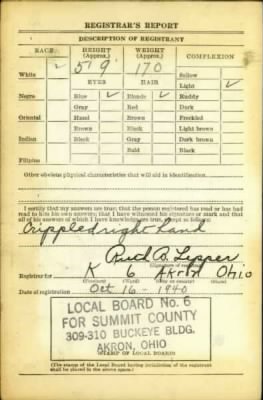 REGISTRAR'S REPORT
DESCRIPTION OF REGISTRANT
RACE HEIGHT (Approx.) WEIGHT (Approx.) COMPLEXION
5' 9" 170
White ✓ EYES HAIR Sallow
Light ✓
Negro Blue ✓ Blonde ✓ Ruddy
Gray Red Dark
Oriental Hazel Brown Freckled
Brown Black Light brown
Indian Black Gray Dark brown
Bald Black
Filipino
Other obvious physical characteristics that will aid in identification
I certify that my answers are true; that the person registered has read or has had
read to him his own answers; that I have witnessed his signature or mark and that
all of his answers of which I have knowledge are true, except as follows:
Crippled right hand
Ruth B. Lepper
Registrar for K 6 Akron Ohio
(Precinct) (Ward) (City or county) (State)
Date of registration Oct 16 - 1940
LOCAL BOARD No. 6
FOR SUMMIT COUNTY
309-310 BUCKEYE BLDG.
AKRON, OHIO
(STAMP OF LOCAL BOARD)
(The stamp of the Local Board having jurisdiction of the registrant
shall be placed in the above space.)